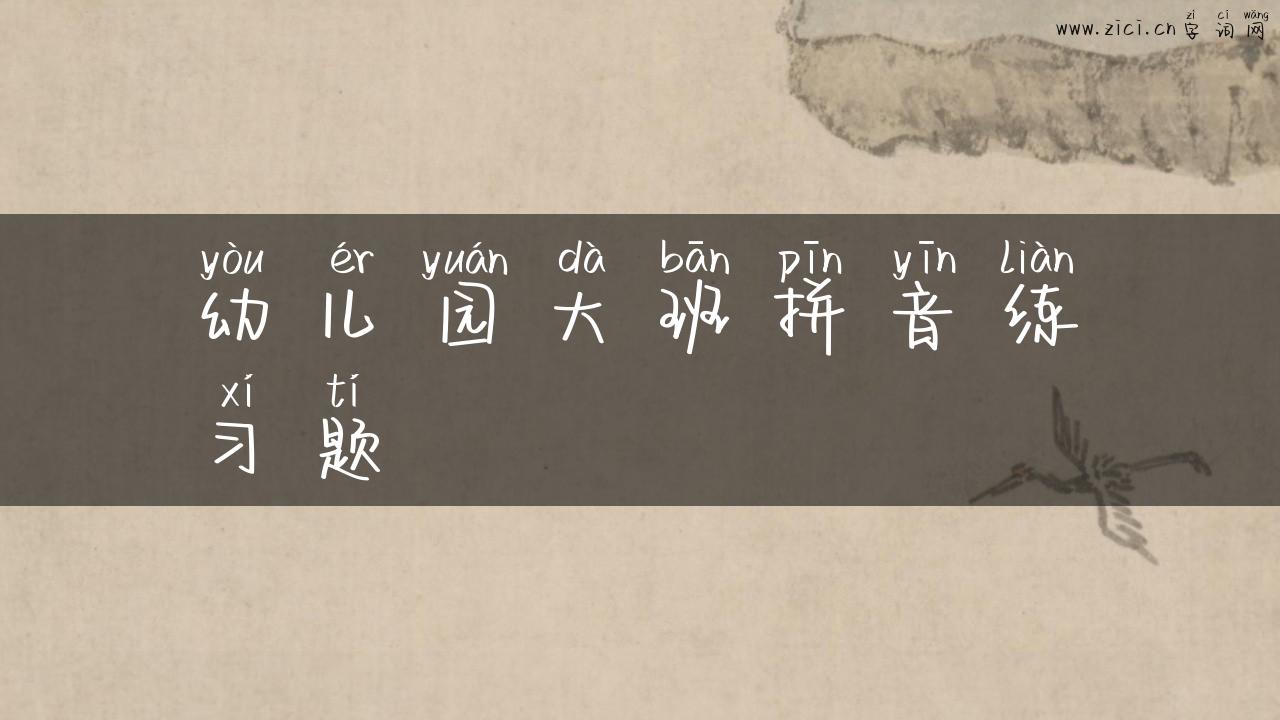 zì cí wǎng
www.zici.cn 字 词 网
yòu ér yuán dà bān pīn yīn liàn
幼 儿 园 大 班 拼 音 练
xí tí
习 题